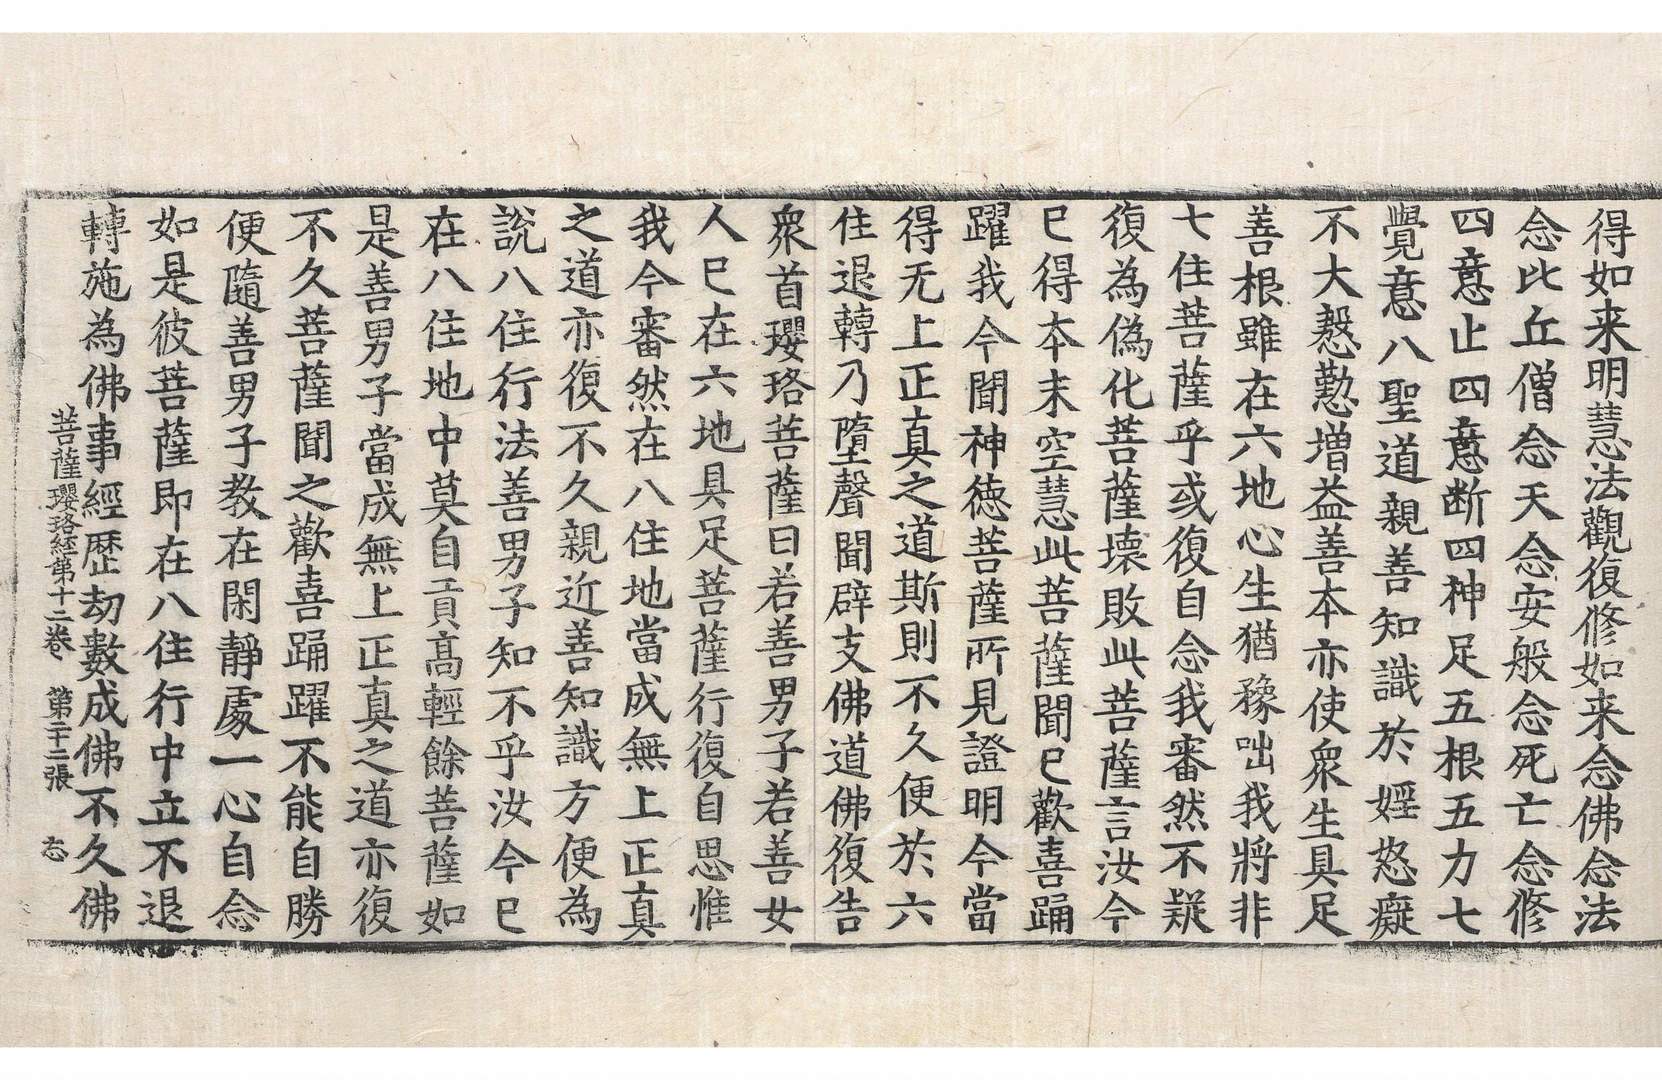 得如来明慧法觀復修如来念佛念法
念比丘僧念天念安般念死亡念修
四意止四意断四神足五根五力七
覺意八聖道親善知識於婬怒癡
不大慇懃增益善本亦使衆生具足
善根雖在六地心生猶豫咄我將非
七住菩薩乎或復自念我審然不疑
復為偽化菩薩壞敗此菩薩言汝今
已得本末空慧此菩薩聞已歡喜踊
躍我今聞神德菩薩所見證明今當
得无上正真之道斯則不久便於六
住退轉乃墮聲聞辟支佛道佛復告
衆首瓔珞菩薩曰若善男子若善女
人已在六地具足菩薩行復自思惟
我今審然在八住地當成無上正真
之道亦復不久親近善知識方便為
說八住行法善男子知不乎汝今已
在八住地中莫自貢高輕餘菩薩如
是善男子當成無上正真之道亦復
不久菩薩聞之歡喜踊躍不能自勝
便隨善男子教在閑靜處一心自念
如是彼菩薩即在八住行中立不退
轉施為佛事經歷劫數成佛不久佛
菩薩瓔珞経第十二卷 第二十二張 志